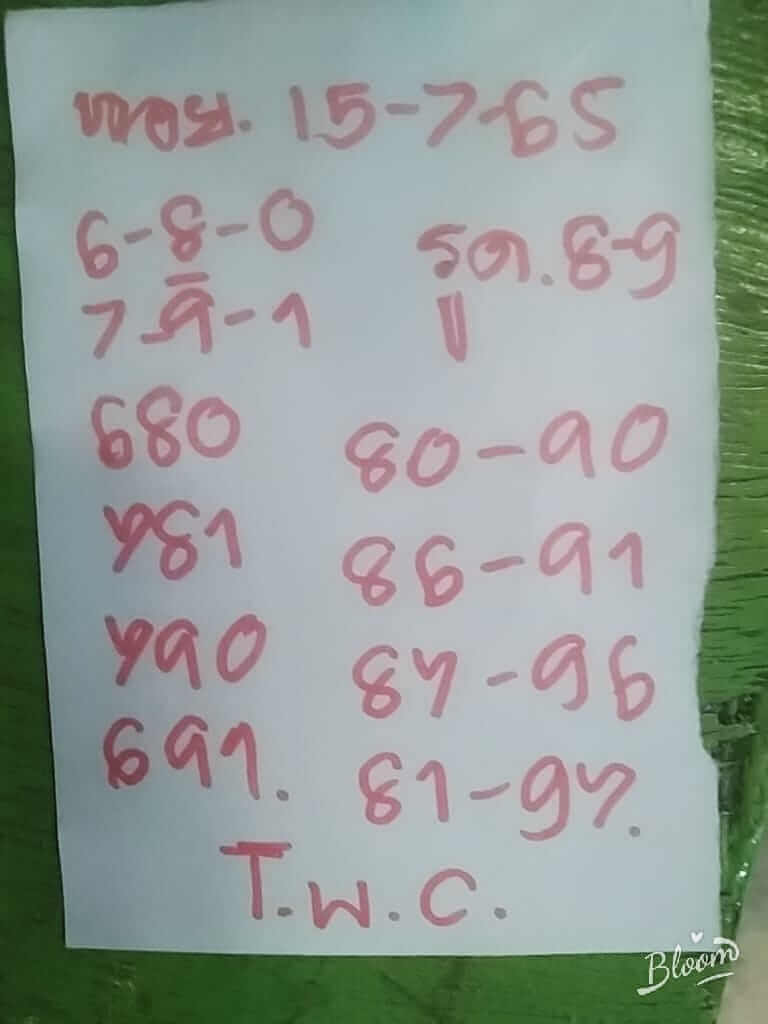 ฮานอย. 15-7-65
6-8-0 รูด. 8-9
7-9-1
680 80-90
781 86-91
790 87-96
691. 81-97.
T.W.C.
Bloom